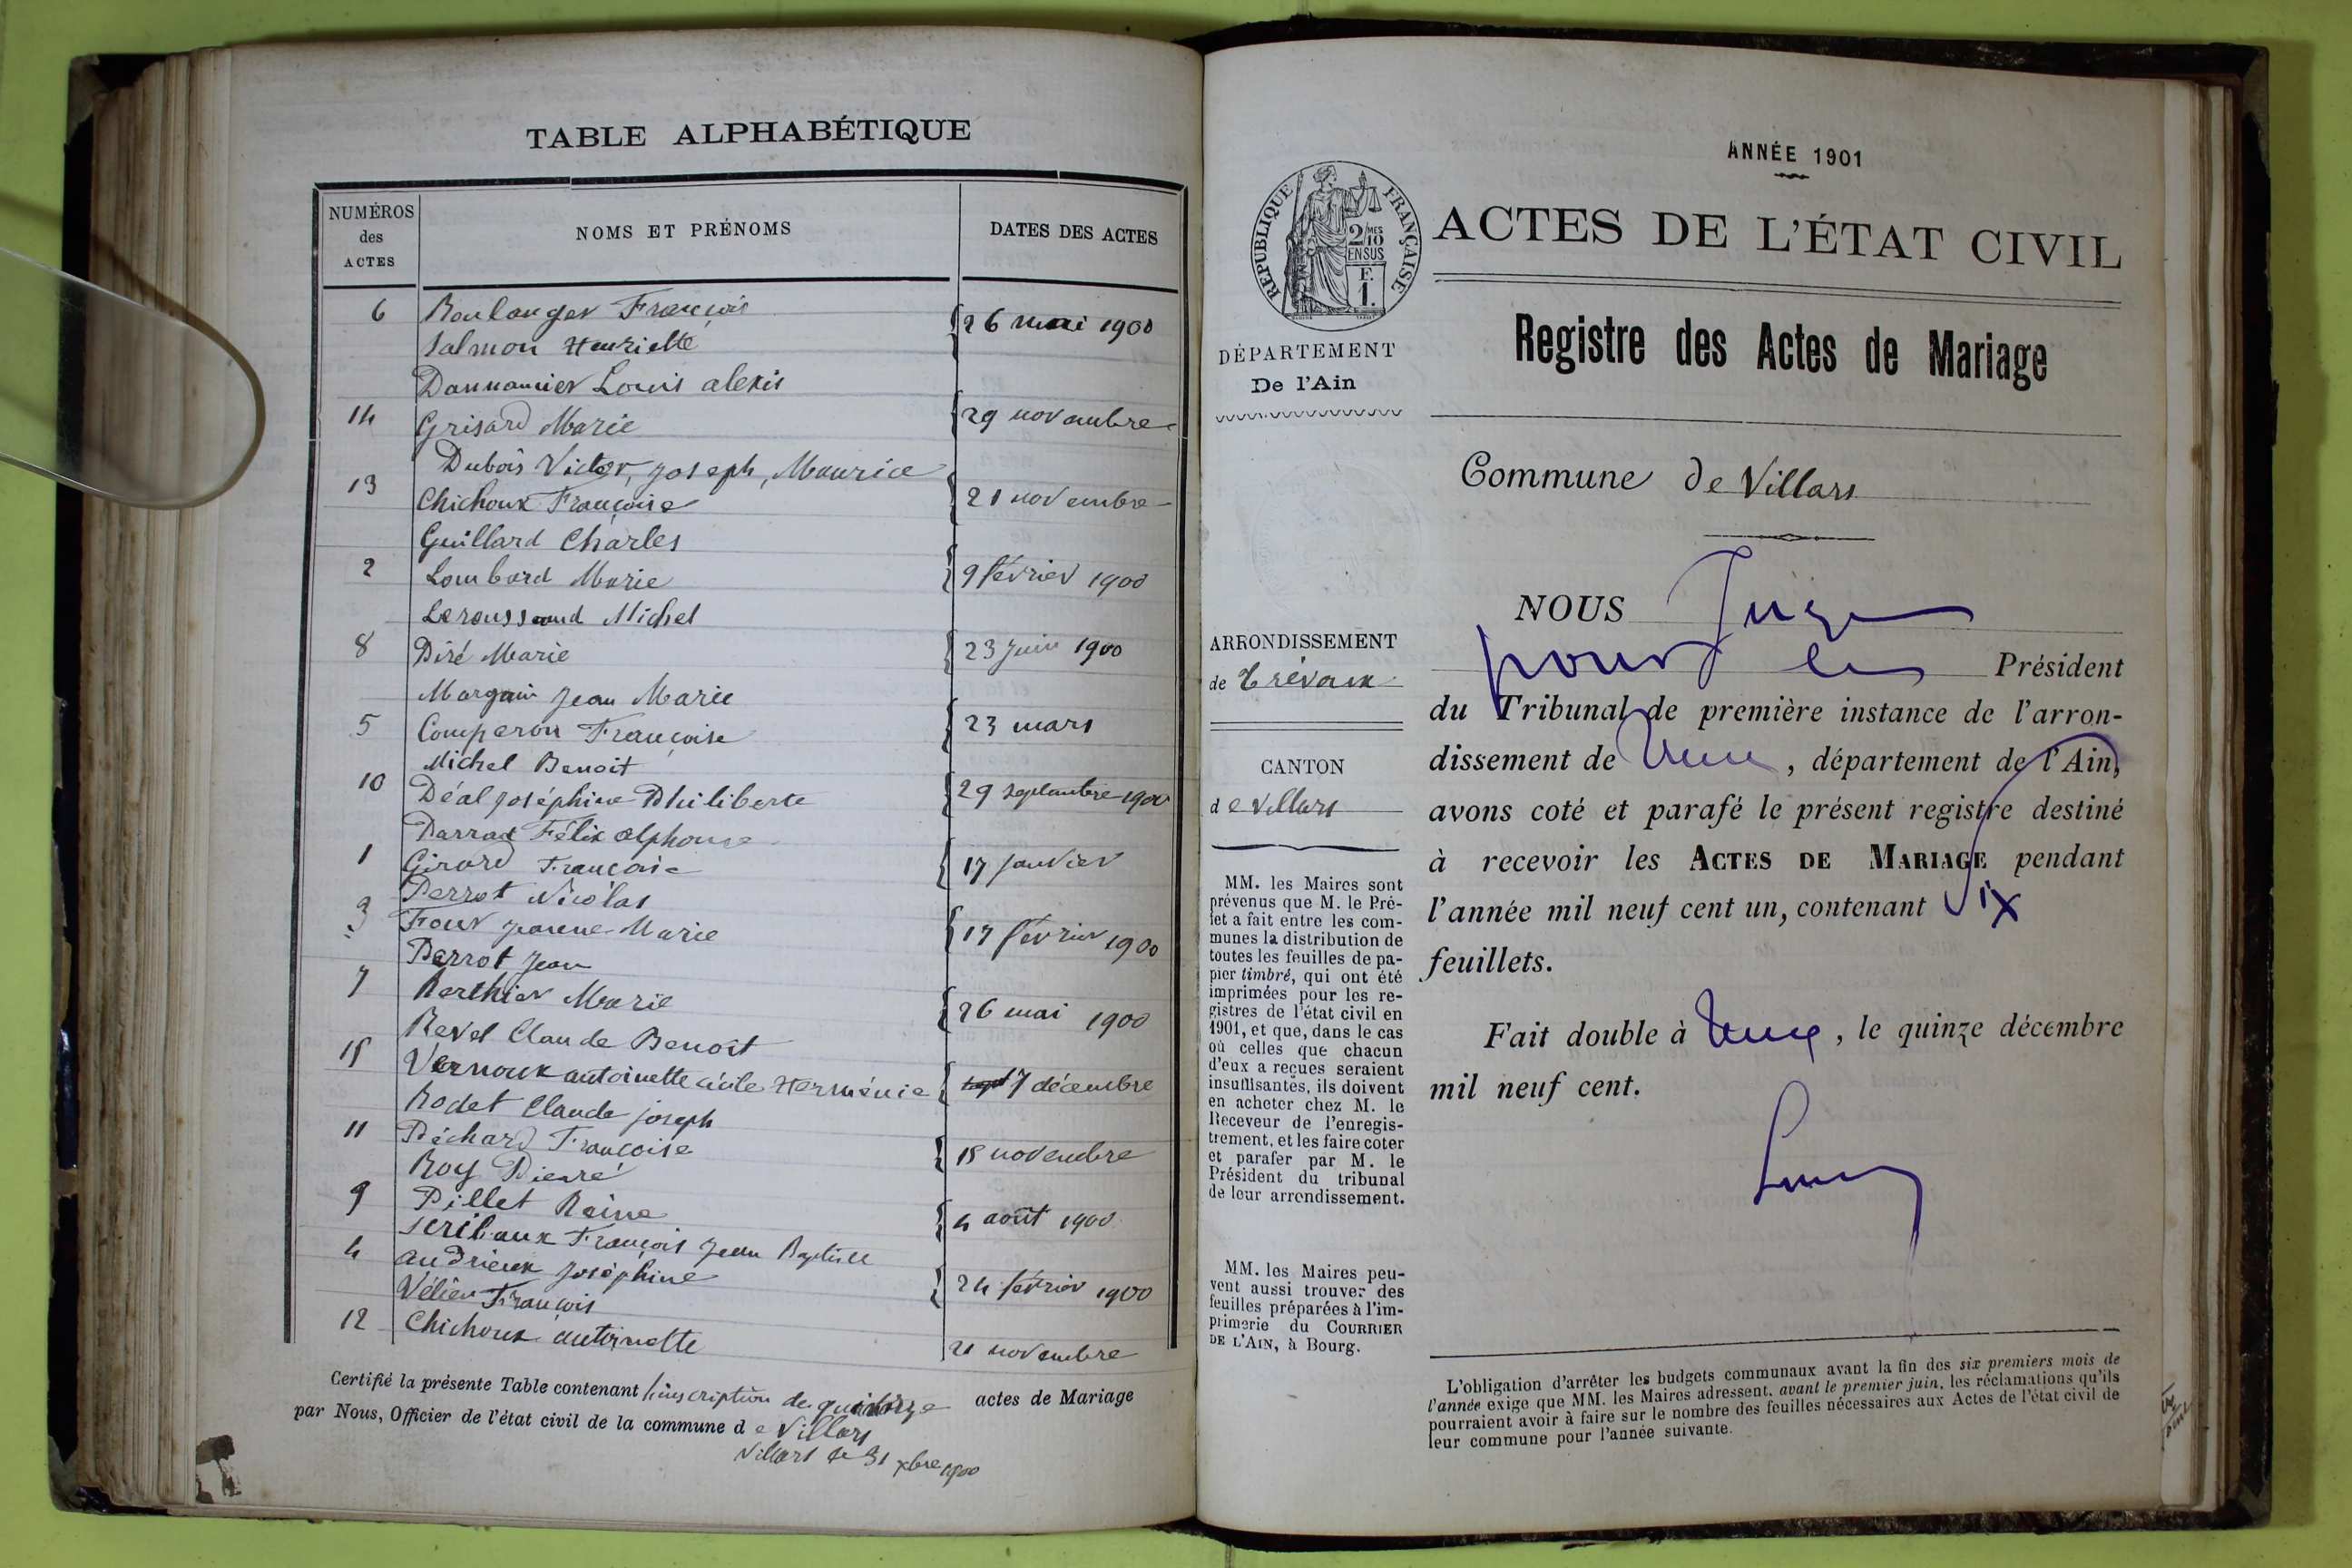 TABLE ALPHABÉTIQUE
NUMÉROS
des
ACTES
NOMS ET PRÉNOMS
DATES DES ACTES
6 Boulanger François
Salmon Henriette
26 mai 1900
Dannancier Louis alexis
14 Grisard Marie
29 novembre
Dubois Victor, joseph, Maurice
13 Chichoux Françoise
21 novembre
Guillard Charles
2 Lombard Marie
9 février 1900
Leroussaud Michel
8 Diré Marie
23 juin 1900
Morgain Jean Marie
5 Comperon Françoise
23 mars
Michel Benoit
10 Déal joséphine Philiberte
29 septembre 1900
Darrad Félix alphonse
1 Girard Françoise
17 janvier
Perrot Nicolas
3 Four jeanne-Marie
17 février 1900
Perrot jean
7 Berthier Marie
26 mai 1900
Revel Claude Benoît
15 Vernoux antoinette cécile Herménie
7 décembre
Rodet Claude joseph
11 Péchard Françoise
15 novembre
Roy Pierre
9 Pillet Reine
4 août 1900
Scribaux François jean Baptiste
4 andrieux joséphine
24 février 1900
Vélien François
12 Chichoux antoinette
21 novembre
Certifié la présente Table contenant l'inscription de quinze actes de Mariage
par Nous, Officier de l'état civil de la commune de Villars
Villars le 31 xbre 1900
ANNÉE 1901
RÉPUBLIQUE FRANÇAISE
2/10
MES
EN SUS
F.
1.
ACTES DE L'ÉTAT CIVIL
Registre des Actes de Mariage
DÉPARTEMENT
De l'Ain
Commune de Villars
ARRONDISSEMENT
de Trévoux
CANTON
de Villars
MM. les Maires sont
prévenus que M. le Pré-
fet a fait entre les com-
munes la distribution de
toutes les feuilles de pa-
pier timbré, qui ont été
imprimées pour les re-
gistres de l'état civil en
1901, et que, dans le cas
où celles que chacun
d'eux a reçues seraient
insuffisantes, ils doivent
en acheter chez M. le
Receveur de l'enregis-
trement, et les faire coter
et parafer par M. le
Président du tribunal
de leur arrondissement.
MM. les Maires peu-
vent aussi trouver des
feuilles préparées à l'im-
primerie du COURRIER
DE L'AIN, à Bourg.
NOUS Juge
pour le Président
du Tribunal de première instance de l'arron-
dissement de , département de l'Ain,
avons coté et parafé le présent registre destiné
à recevoir les ACTES DE MARIAGE pendant
l'année mil neuf cent un, contenant six
feuillets.
Fait double à , le quinze décembre
mil neuf cent.
L'obligation d'arrêter les budgets communaux avant la fin des six premiers mois de
l'année exige que MM. les Maires adressent, avant le premier juin, les réclamations qu'ils
pourraient avoir à faire sur le nombre des feuilles nécessaires aux Actes de l'état civil de
leur commune pour l'année suivante.